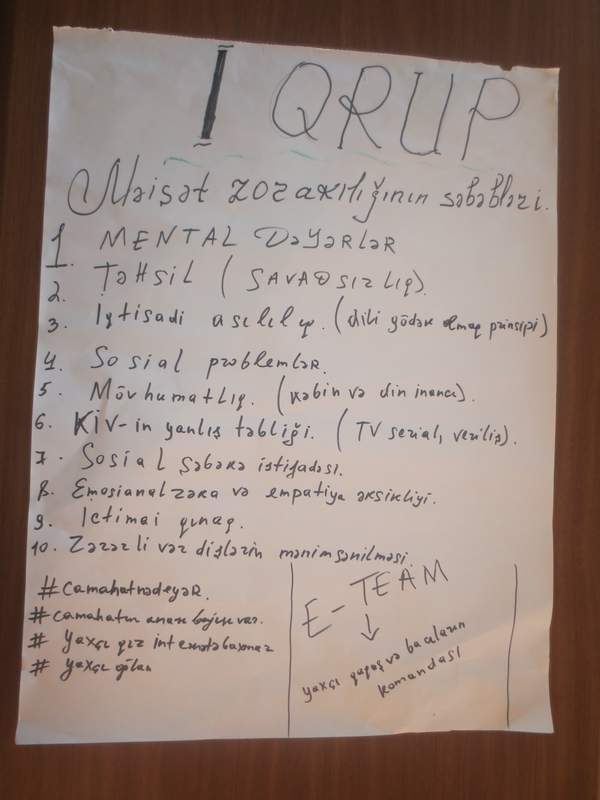 I QRUP
Məişət zorakılığının səbəbləri.
1. MENTAL DəYəRLəR
2. TəHSİL (SAVADSIZLIQ).
3. Iqtisadi asılılıq. (dili gödək olmaq prinsipi)
4. Sosial problemlər.
5. Mövhumatlıq. (kəbin və din inancı).
6. KİV-in yanlış təbliği. (TV serial, veriliş).
7. Sosial şəbəkə istifadəsi.
8. Emosianal zəka və empatiya əksikliyi.
9. Ictimai qınaq.
10. Zərərli vərdişlərin mənimsənilməsi
#camahatnədeyəR.
#camahatın anası bajısı var.
# Yaxçı qız internetəbaxmaz
# yaxçı oğlan
E-TEAM
↓
yaxçı qaqaş və bacıların
komandası